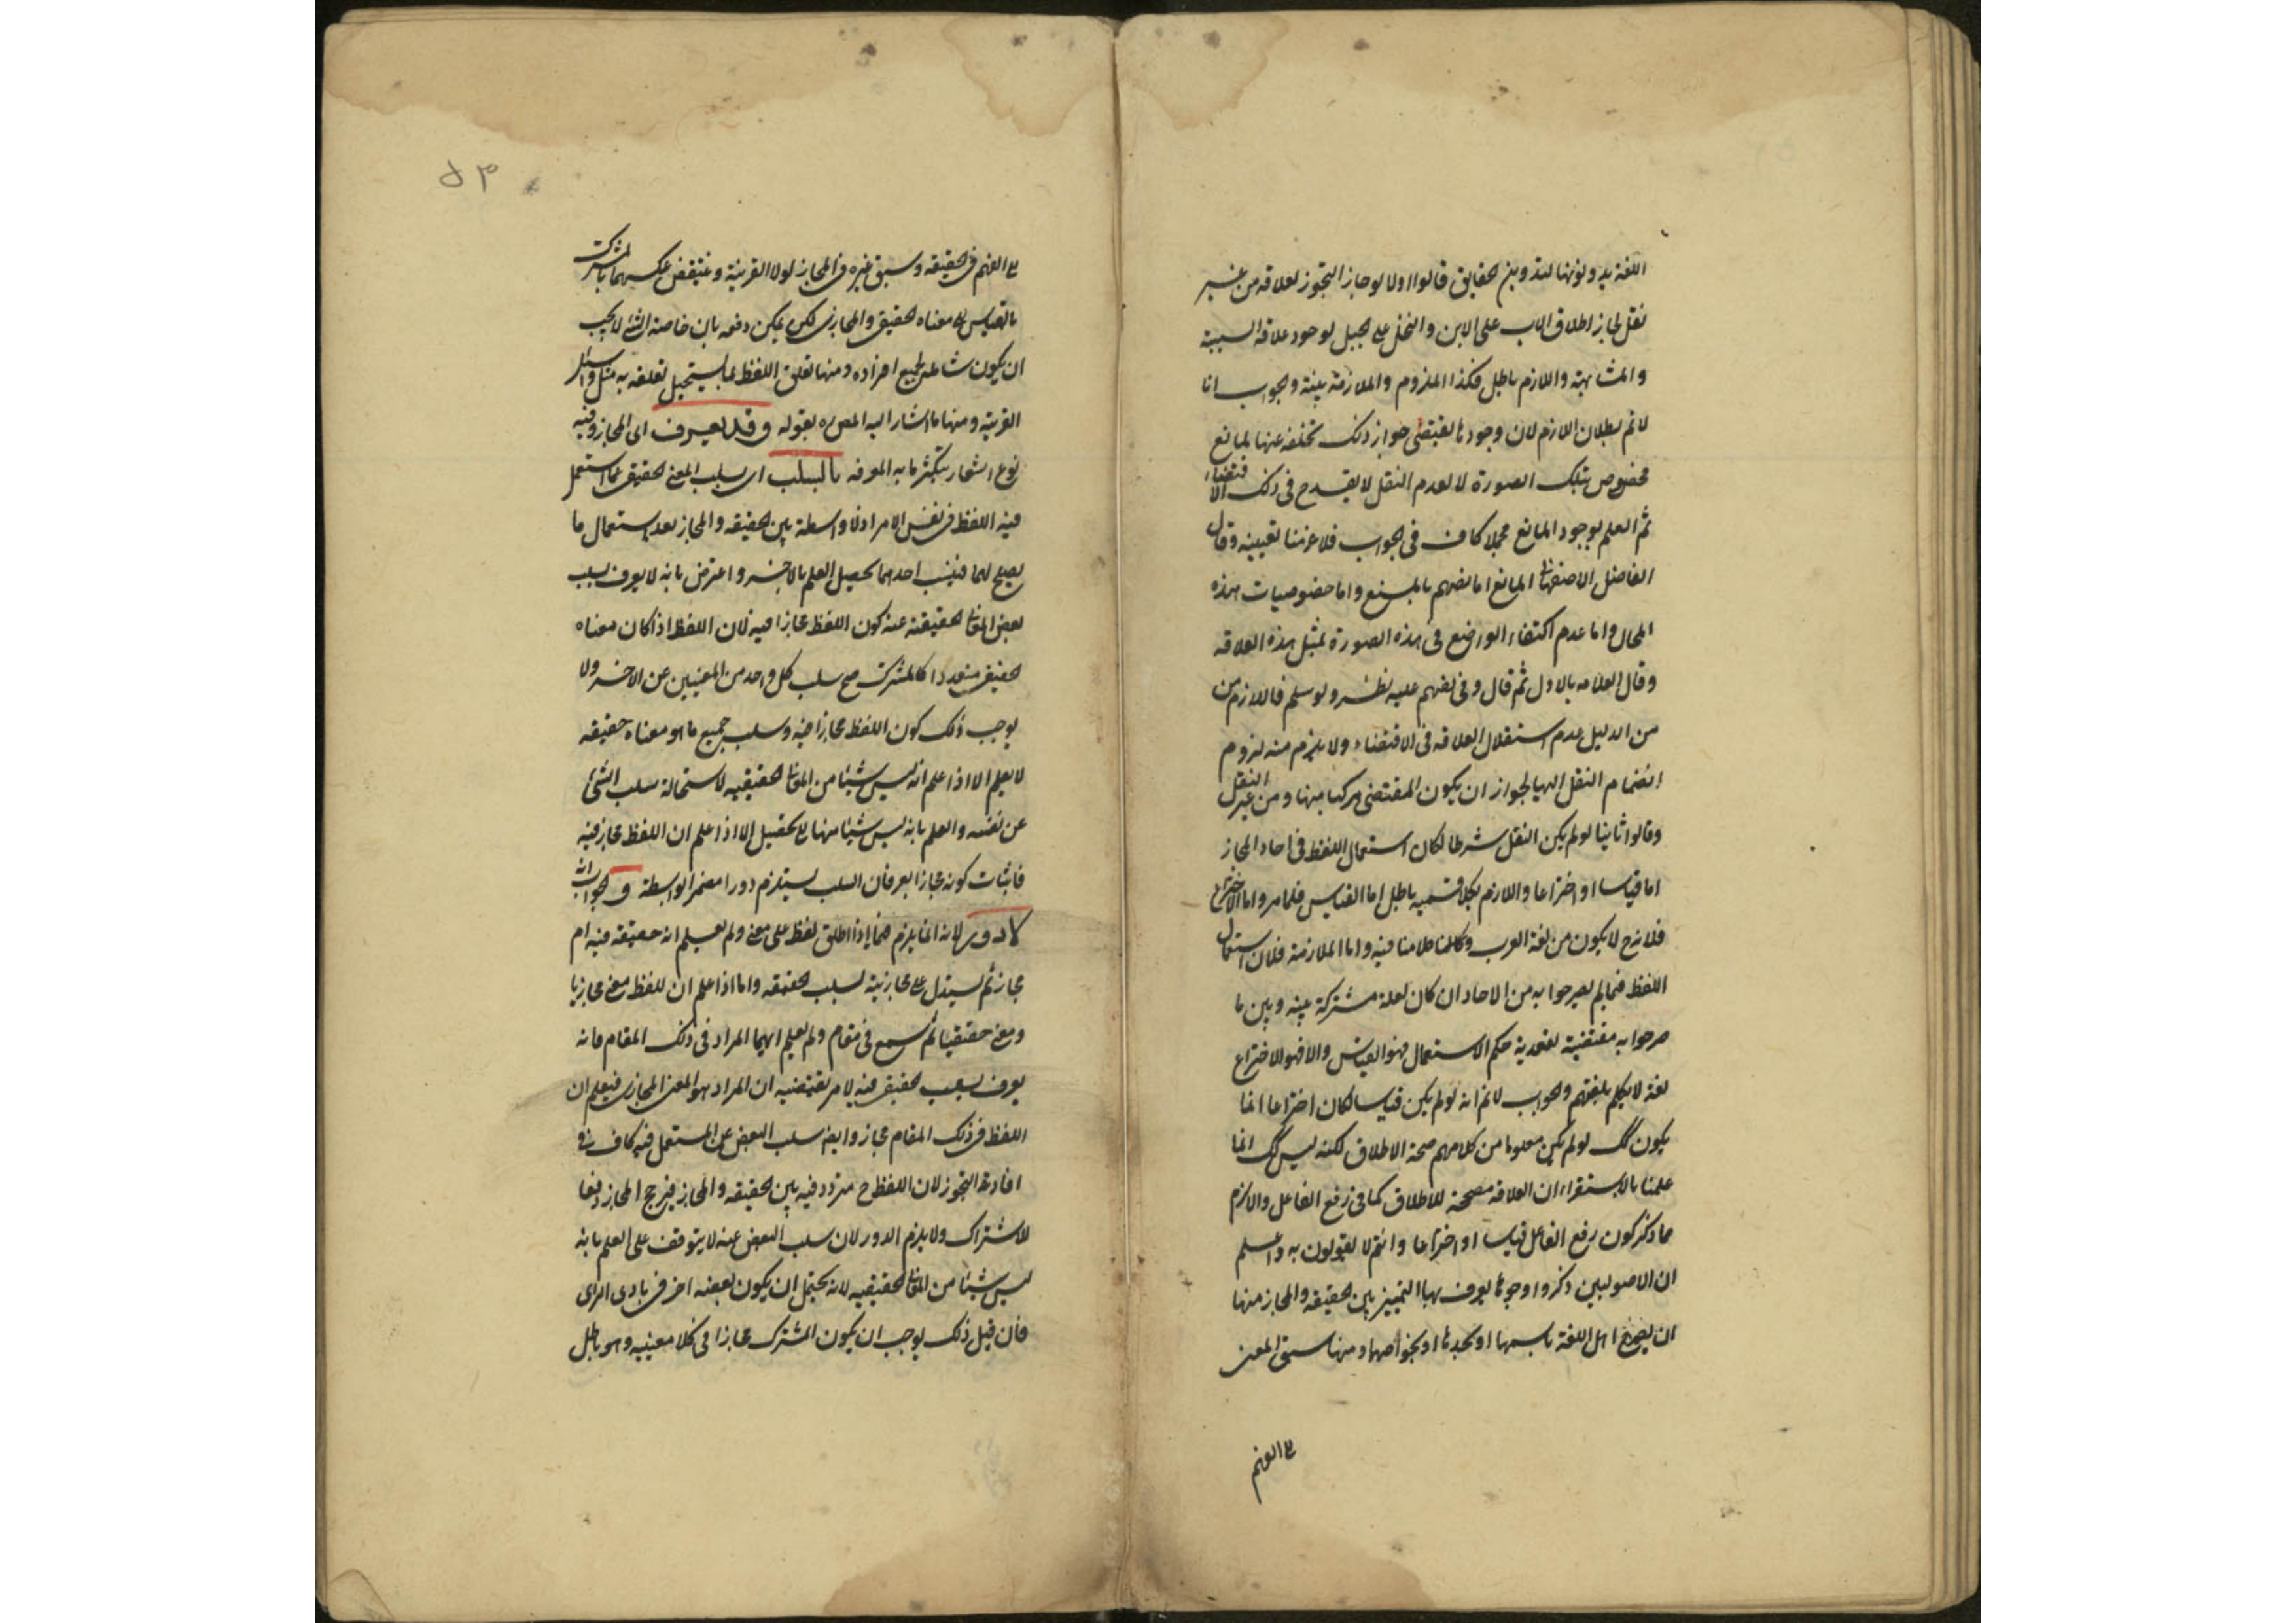 اللغة يدونونها تدوين الحقايق قالوا اولا لو جاز التجوز لعلاقه من غير
نقل لجاز اطلاق الاب على الابن والنخل على الجبل لوجود علاقة السببية
والمشابهة واللازم باطل فكذا الملزوم والملازمة بينة والجواب انا
لا نم بطلان اللازم لان وجودها يقتضى جواز ذلك تخلفه عنها لمانع
مخصوص بتلك الصورة لا لعدم النقل لا يقدح فى ذلك الاقتضاء
ثم العلم بوجود المانع مجملا كاف فى الجواب فلا علينا تعيينه وقال
الفاضل الاصفهانى المانع اما نصهم بالمنع واما خصوصيات هذه
المحال واما عدم اكتفاء الواضع فى هذه الصورة بمثل هذه العلاقه
وقال العلامه بالاول ثم قال وفى نصهم عليه نظر ولو سلم فاللازم من
من الدليل عدم استقلال العلاقه فى الاقتضاء ولا يلزم منه لزوم
انضمام النقل اليها لجواز ان يكون المقتضى مركبا منها ومن غير النقل
وقالوا ثانيا لو لم يكن النقل شرطا لكان استعمال اللفظ فى احاد المجاز
اما قياسا او اختراعا واللازم بكلا قسميه باطل اما القياس فلما مر واما الاختراع
فلانه ح لا يكون من لغة العرب وكلامنا فيه واما الملازمة فلان استعمال
اللفظ فيما لم يصرحوا به من الاحاد ان كان لعلة مشتركة بينه وبين ما
صرحوا به مقتضية لتعدية حكم الاستعمال فهو القياس والا فهو الاختراع
لغة لا يكلم بلغتهم والجواب لا نم انه لو لم يكن قياسا لكان اختراعا انما
يكون كك لو لم يكن معلوما من كلامهم صحة الاطلاق لكنه ليس كك انما
علمنا بالاستقراء ان العلاقه مصححة للاطلاق كما فى رفع الفاعل والالزم
مما ذكر كون رفع الفاعل قياسا او اختراعا وانتم لا تقولون به واعلم
ان الاصوليين ذكروا وجوها يعرف بها التمييز بين الحقيقه والمجاز منها
ان يصرح اهل اللغة باسمها او بحدها او بخواصها ومنها سبق المعنى
الى الفهم
٥٣
الى الفهم فى الحقيقه وسبق غيره فى المجاز لولا القرينة وينتقض عكسهما بالمشترك
بالقياس الى معناه الحقيقى والمجازى لكن يمكن دفعه بان خاصة الشئ لا يجب
ان يكون شاملة لجميع افراده ومنها تعلق اللفظ بما يستحيل تعلقه به مثل واسئل
القرية ومنها ما اشار اليه المص ره بقوله وقد يعرف اى المجاز وفيه
نوع اشعار بتكثر ما به المعرفه بالسلب اى بسلب المعنى الحقيقى عما استعمل
فيه اللفظ فى نفس الامر اذ لا واسطة بين الحقيقه والمجاز بعد استعمال ما
يصلح لهما فبنفى احدهما يحصل العلم بالاخر واعترض بانه لا يعرف بسلب
بعض المعانى الحقيقية عنه كون اللفظ مجازا فيه لان اللفظ اذا كان معناه
الحقيقى متعددا كالمشترك صح سلب كل واحد من المعنيين عن الاخر ولا
يوجب ذلك كون اللفظ مجازا فيه وسلب جميع ما هو معناه حقيقه
لا يعلم الا اذا علم انه ليس شيئا من المعانى الحقيقيه لاستحالة سلب الشئ
عن نفسه والعلم بانه ليس شيئا منها لا يحصل الا اذا علم ان اللفظ مجاز فيه
فاثبات كونه مجازا بعرفان السلب يستلزم دورا مضمرا بواسطة والجواب انه
لا دور لانه انما يلزم فيما اذا اطلق لفظ على معنى ولم يعلم انه حقيقه فيه ام
مجاز ثم يستدل على مجازيته بسلب الحقيقه واما اذا علم ان للفظ معنى مجازيا
ومعنى حقيقيا ثم سمع فى مقام ولم يعلم ايهما المراد فى ذلك المقام فانه
يعرف بسلب الحقيقى فيه لامر يقتضيه ان المراد هو المعنى المجازى فيعلم ان
اللفظ فى ذلك المقام مجاز وايضا سلب البعض عن المستعمل فيه كاف فى
افادة التجوز لان اللفظ ح متردد فيه بين الحقيقه والمجاز فيرجح المجاز دفعا
للاشتراك ولا يلزم الدور لان سلب البعض عنه لا يتوقف على العلم بانه
ليس شيئا من المعانى الحقيقيه لانه يحتمل ان يكون بعضه اخر فى بادى الراى
فان قيل ذلك يوجب ان يكون المشترك مجازا فى كلا معنييه وهو باطل